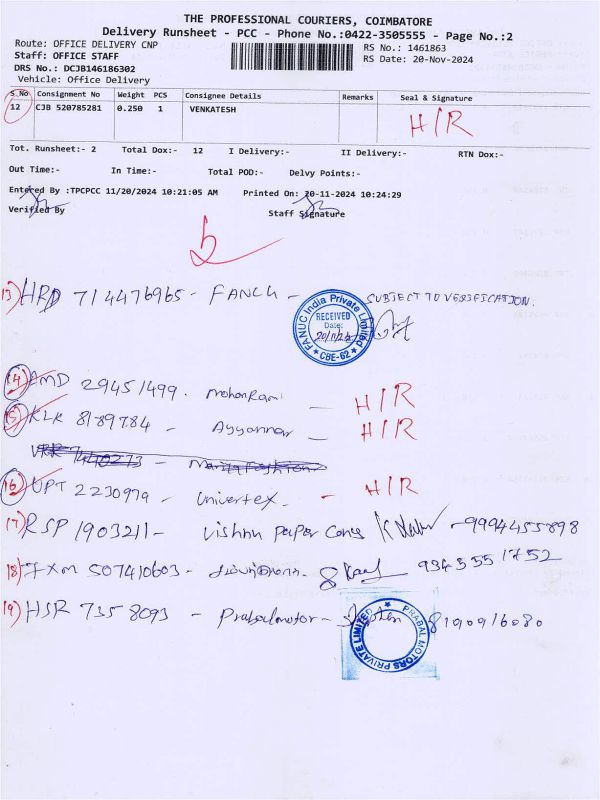 THE PROFESSIONAL COURIERS, COIMBATORE
Delivery Runsheet - PCC - Phone No.:0422-3505555 - Page No.:2
Route: OFFICE DELIVERY CNP
RS No.: 1461863
Staff: OFFICE STAFF
RS Date: 20-Nov-2024
DRS No.: DCJB146186302
Vehicle: Office Delivery
S.No Consignment No Weight PCS Consignee Details Remarks Seal & Signature
12 CJB 520785281 0.250 1 VENKATESH H/R
Tot. Runsheet:- 2 Total Dox:- 12 I Delivery:- II Delivery:- RTN Dox:-
Out Time:- In Time:- Total POD:- Delvy Points:-
Entered By :TPCPCC 11/20/2024 10:21:05 AM Printed On: 20-11-2024 10:24:29
Verified By Staff Signature
13) HRD 714476965 - FANCU - SUBJECT TO VERIFICATION.
FANUC India Private Limited
RECEIVED
Date:
* CBE-62 *
14) AMD 29451499. Mohanrami - H/R
15) KLR 8189784 - Ayyannar - H/R
16) UPT 2230979 - Univertex. - H/R
17) RSP 1903211 - Vishnu paper cones - 9994455898
18) FXM 507410603 - 934 3 55 1752
19) HSR 7358093 - Prabalmotor - 8190916080
PRABAL MOTORS PRIVATE LIMITED